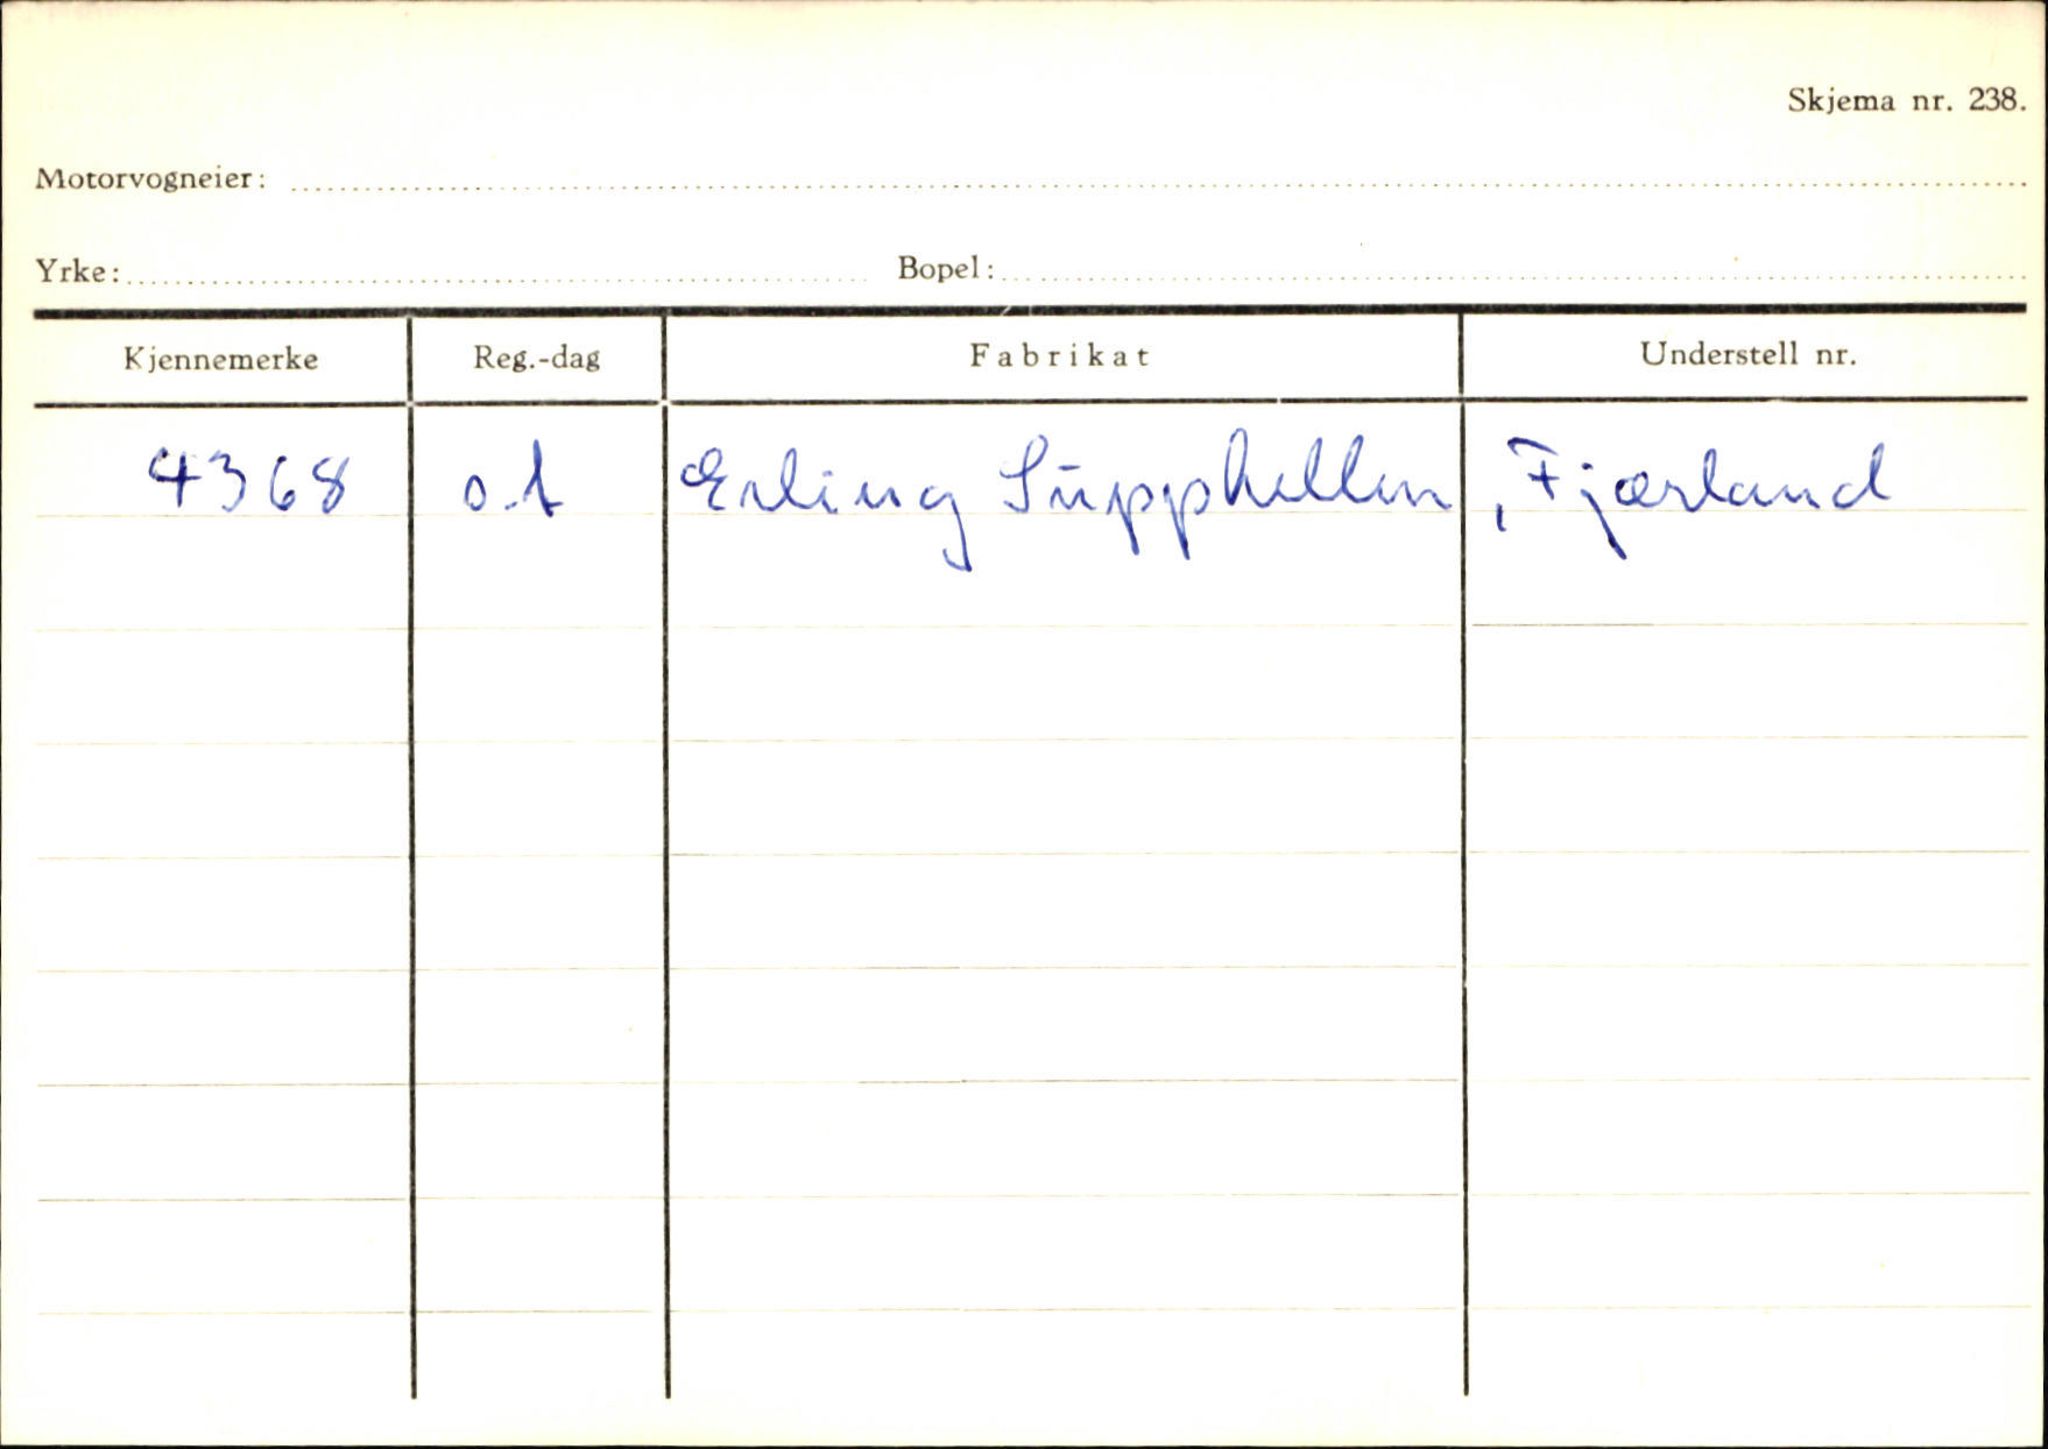 Skjema nr. 238.
Motorvogneier:
Yrke: Bopel:
Kjennemerke Reg.-dag Fabrikat Understell nr.
4368 o.t Erling Supphellen, Fjærland